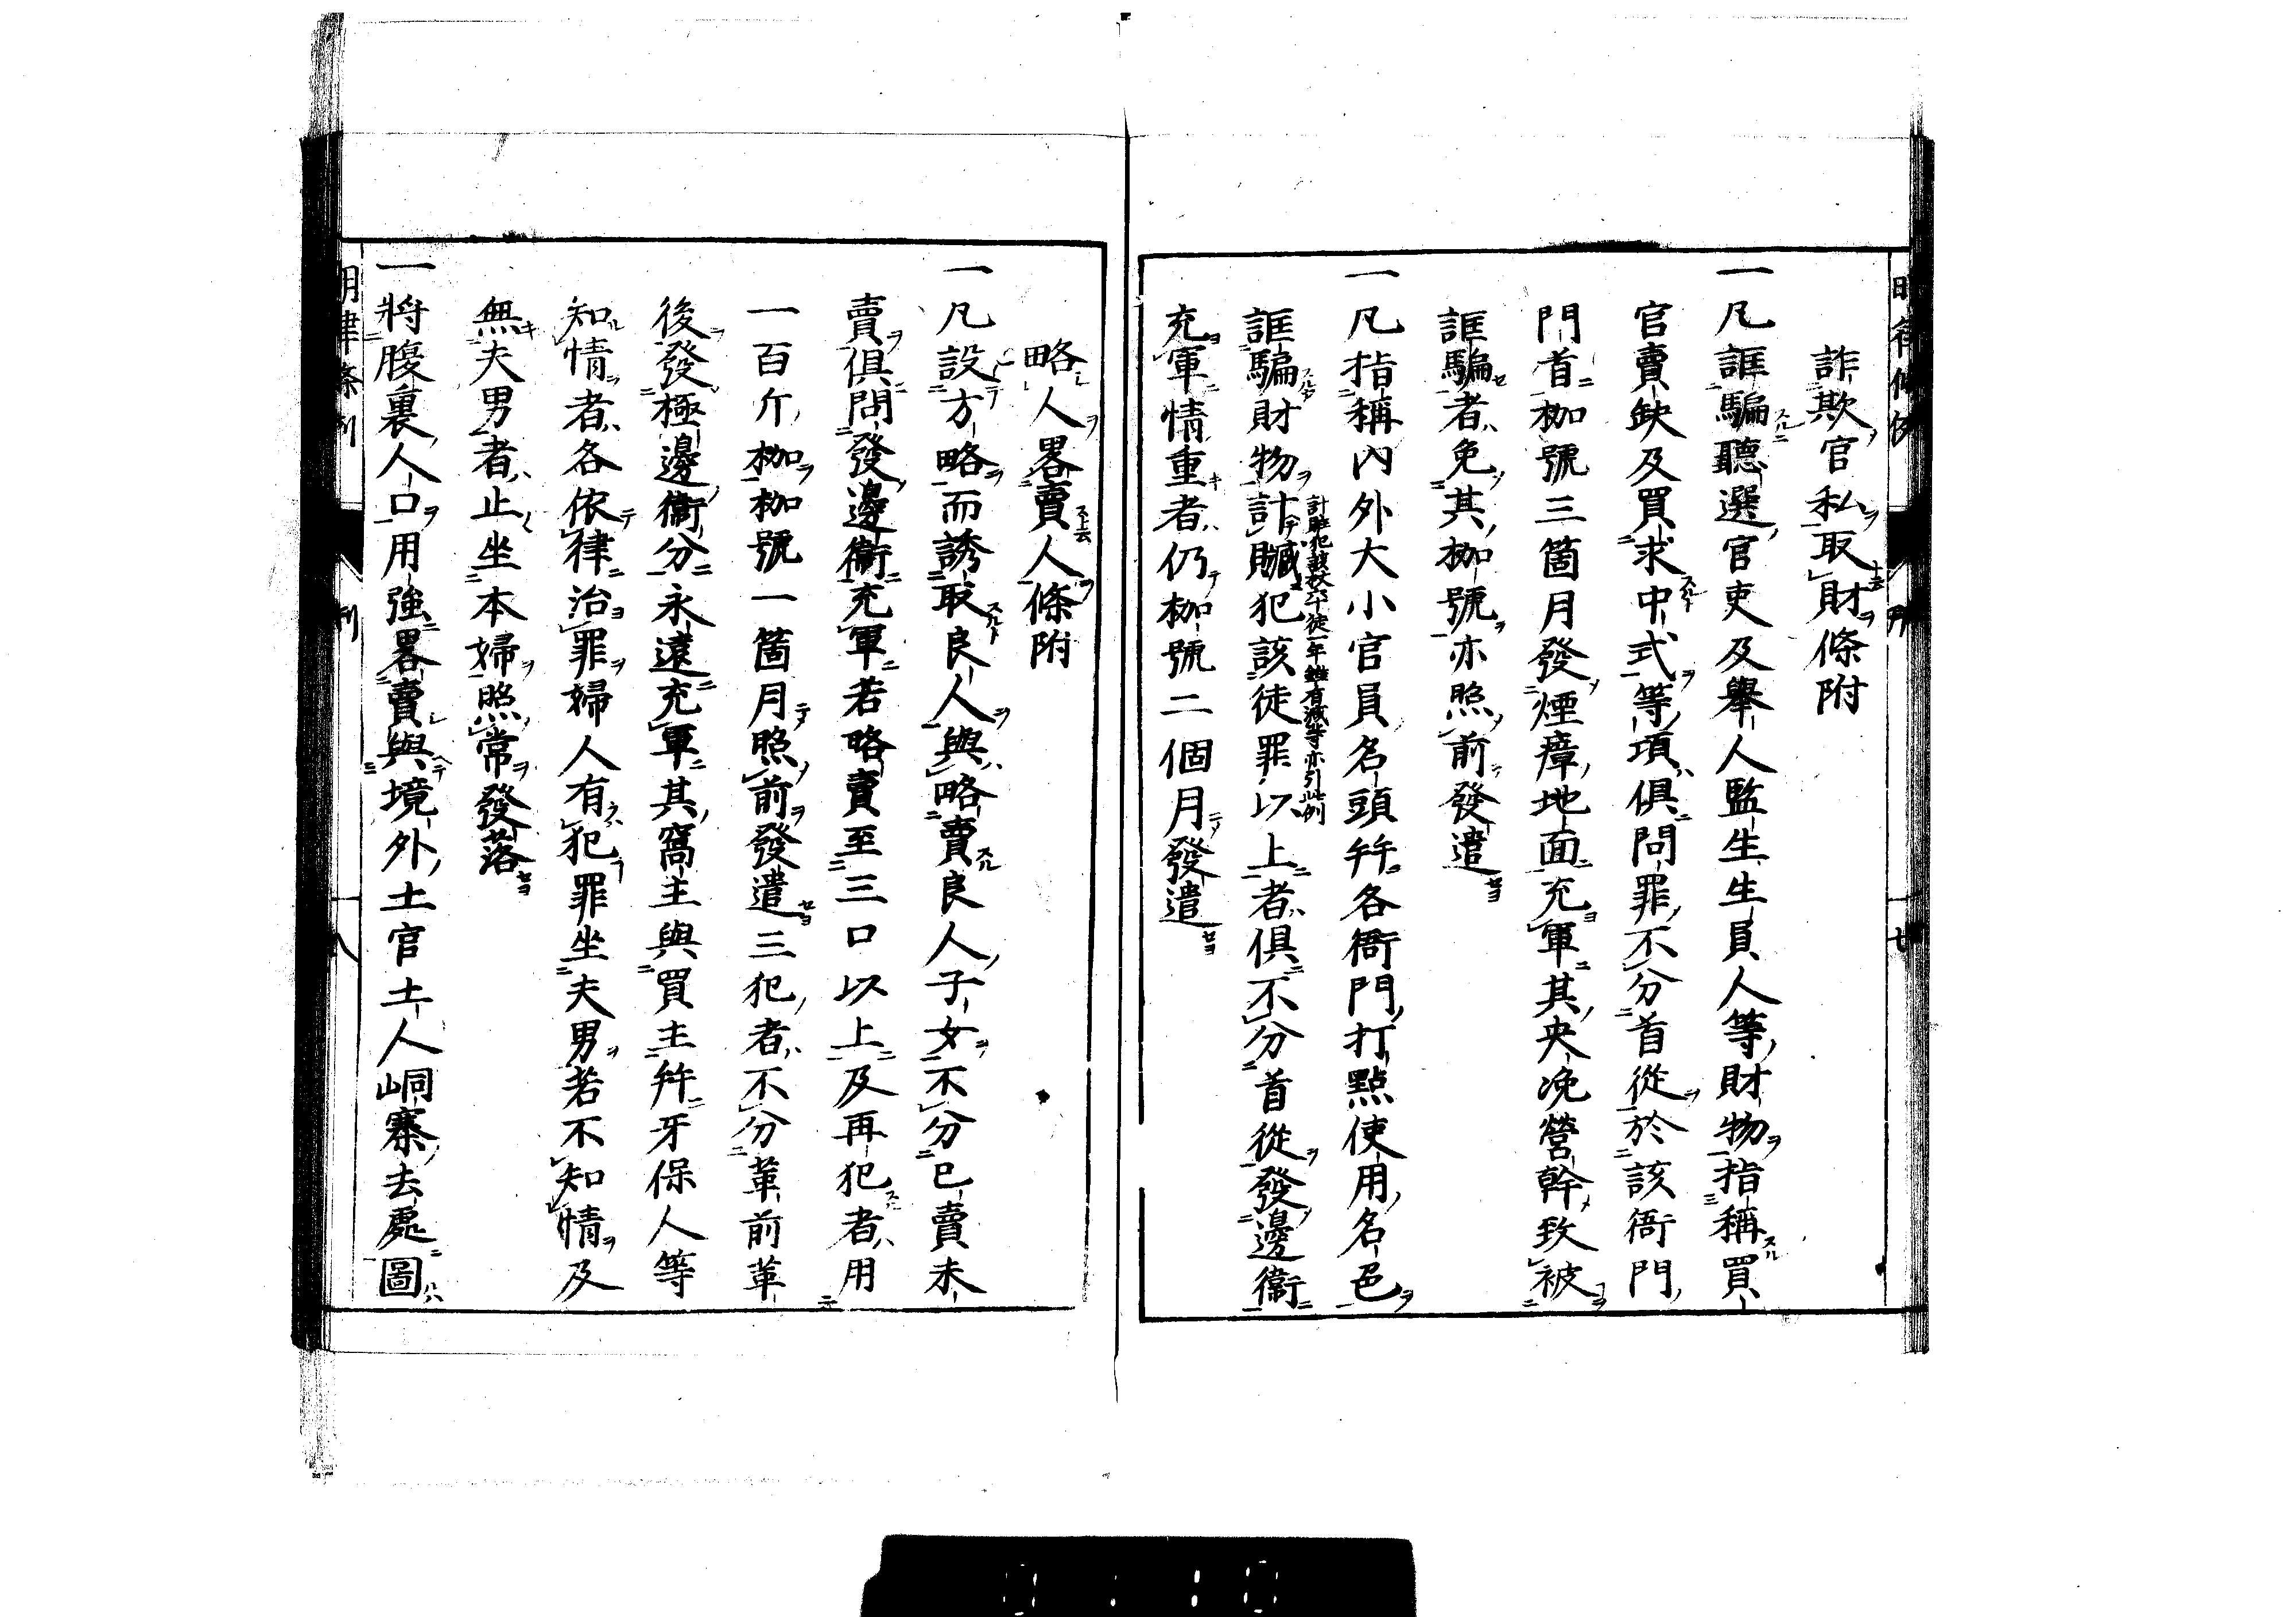 詐欺官私取財條附
一凡誆騙聽選官吏及舉人監生生員人等財物指稱買
官賣缺及買求中式等項俱問罪不分首從於該衙門
門首枷號三箇月發煙瘴地面充軍其央浼營幹致被
誆騙者免其枷號亦照前發遣
一凡指稱內外大小官員名頭幷各衙門打點使用名色
誆騙財物計贓犯該徒罪以上者俱不分首從發邊衛
計贓犯該杖六十徒一年雖有減等亦引此例
充軍情重者仍枷號二個月發遣
略人畧賣人條附
一凡設方略而誘取良人與略賣良人子女不分已賣未
賣俱問發邊衛充軍若略賣至三口以上及再犯者用
一百斤枷枷號一箇月照前發遣三犯者不分革前革
後發極邊衛分永遠充軍其窩主與買主幷牙保人等
知情者各依律治罪婦人有犯罪坐夫男若不知情及
無夫男者止坐本婦照常發落
一將腹裏人口用強畧賣與境外土官土人峒寨去處圖